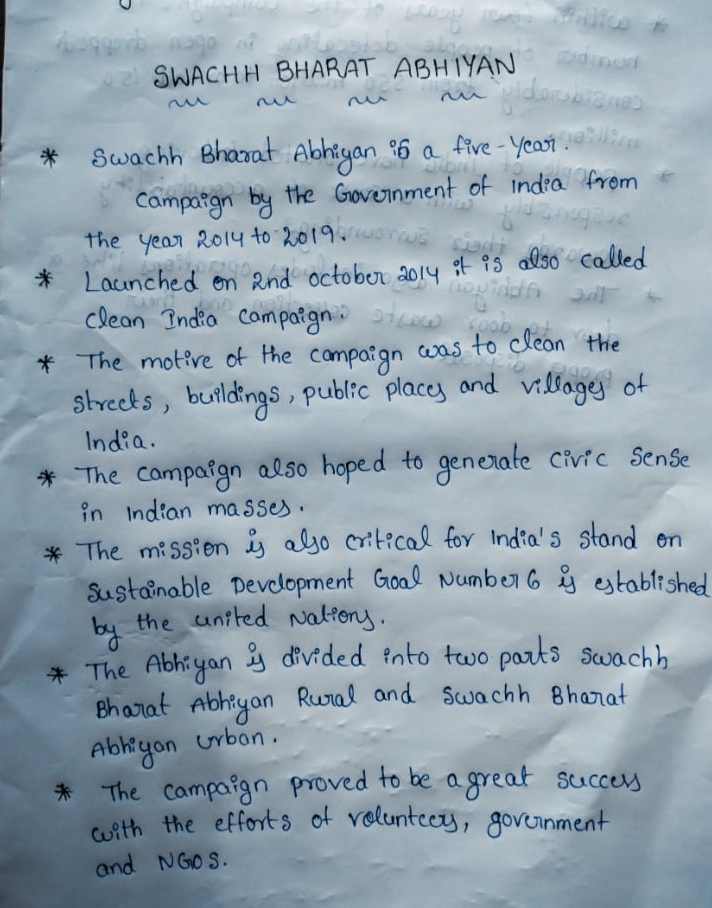 SWACHH BHARAT ABHIYAN
* Swachh Bharat Abhiyan is a five-year.
campaign by the Government of India from
the year 2014 to 2019.
* Launched on 2nd october 2014 it is also called
clean India campaign.
* The motive of the campaign was to clean the
streets, buildings, public places and villages of
India.
* The campaign also hoped to generate civic sense
in Indian masses.
* The mission is also critical for India's stand on
Sustainable Development Goal Number 6 is established
by the united Nations.
* The Abhiyan is divided into two parts Swachh
Bharat Abhiyan Rural and Swachh Bharat
Abhiyan Urban.
* The campaign proved to be a great success
with the efforts of volunteers, government
and NGOS.